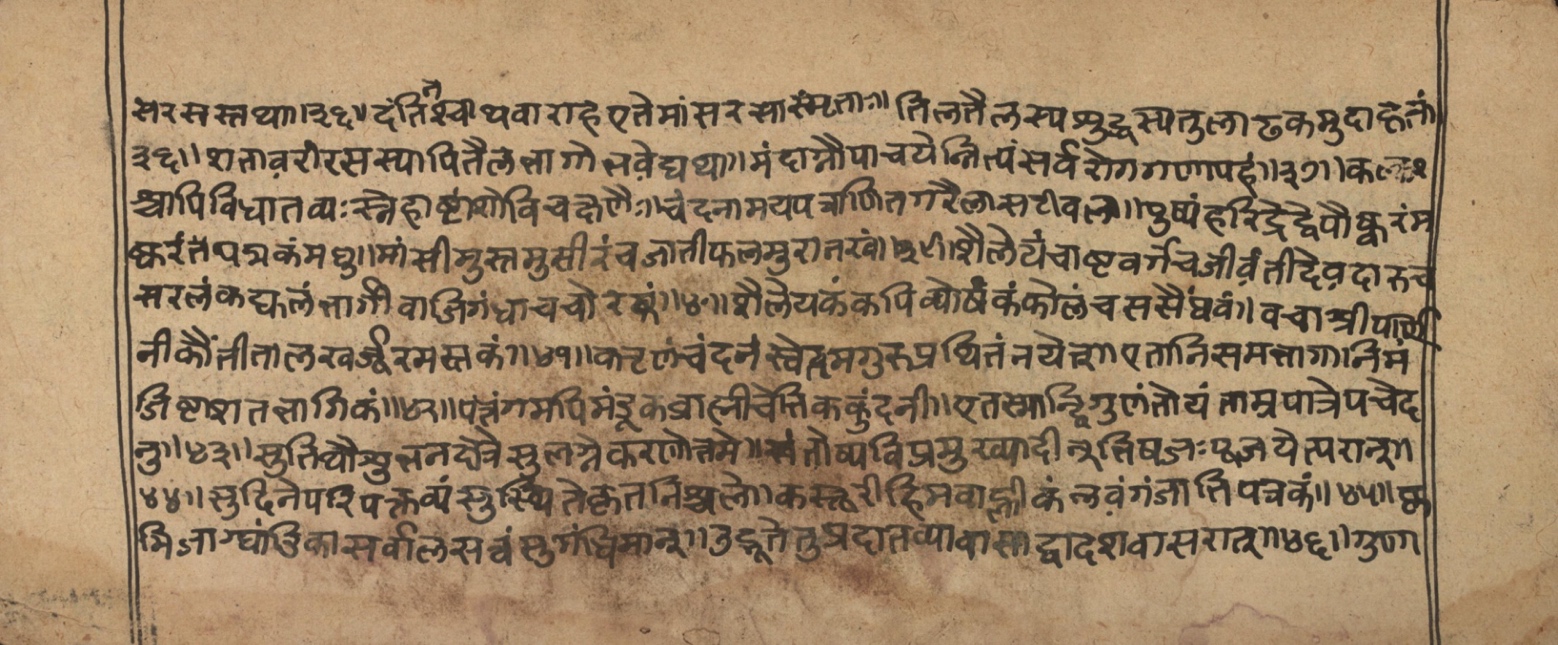 सरसस्तथा॥३६॥दंतिनश्चाथवाराहएतेमांसरसास्मृताः॥तिलतैलस्यशुद्धस्यतुलाढकमुदाहृतां
३६॥शतावरीरसस्यापितैलेभागोभवेद्यथा॥मंदाग्नौपाचयेन्नित्यंसर्वरोगगणापहं॥३७॥कल्कः
श्चापिविधातव्यःस्नेहाष्टांशोविचक्षणैः॥चंदनामयपत्राणितगरैलासटीवला॥पुष्पंहरिद्रेद्वेपौष्करंम
ष्करंतंपद्मकंमधु॥मांसीमुस्तमुसीरंचजातीफलमुरानखं॥३९॥शैलेयंचाष्टवर्गंचजीवंतीदेवदारुच
सरलंकद्फलंभार्गीवाजिगंधाचचोरकं॥४०॥शैलेयकंकपिव्योषंकंकोलंचससैंधवं॥वचाश्रीपर्णि
नीकौंतीतालखर्जूरमस्तकं॥४१॥कतृणंचंदनंस्वेतमगुरुप्रथितंनयेत्॥एतानिसमभागानिमं
जिष्टाशतभागिकं॥४२॥पत्रंगमपिमंडूकब्राह्मीचेतिककुंदनी॥एतस्मान्द्विगुणंतोयंताम्रपात्रेपचेद
नु॥४३॥सुतिथौशुभनक्षत्रेसुलग्नेकरणोत्तमे॥संतोष्यविप्रमुख्यादीन्भिषजःपूजयेत्परान्॥
४४॥सुदिनेपरिपक्तव्यंसुस्थितेकृतनिश्चले॥कस्तूरीहिमवाह्लीकंलवंगंजातिपत्रकं॥४५॥कृ
मिजाग्घांडिकासर्वालसत्वंसुगंधिमान्॥उद्धृतेतुप्रदातव्यावासाद्वादशवासरान्॥४६॥गुण